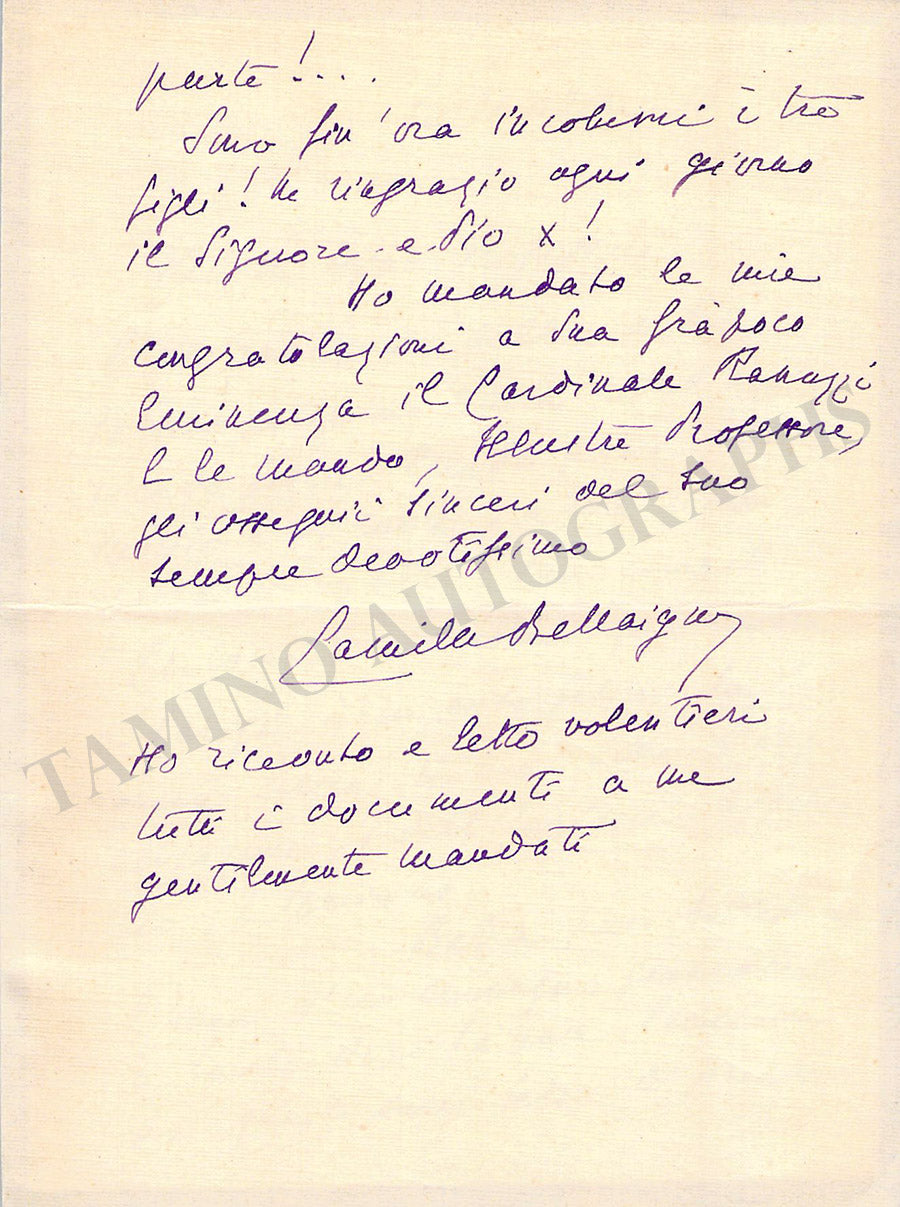 parte!....
Sono fin'ora incolumi i tre
figli! Ne ringrazio ogni giorno
il Signore e Pio X!
Ho mandato le mie
congratolazioni a Sua fra poco
Eminenza il Cardinale Ranuzzi
E le mando, Illustre Professore,
gli ossequii sinceri del suo
sempre devotissimo
Camille Bellaigue
Ho ricevuto e letto volentieri
tutti i documenti a me
gentilmente mandati
TAMINO AUTOGRAPHS